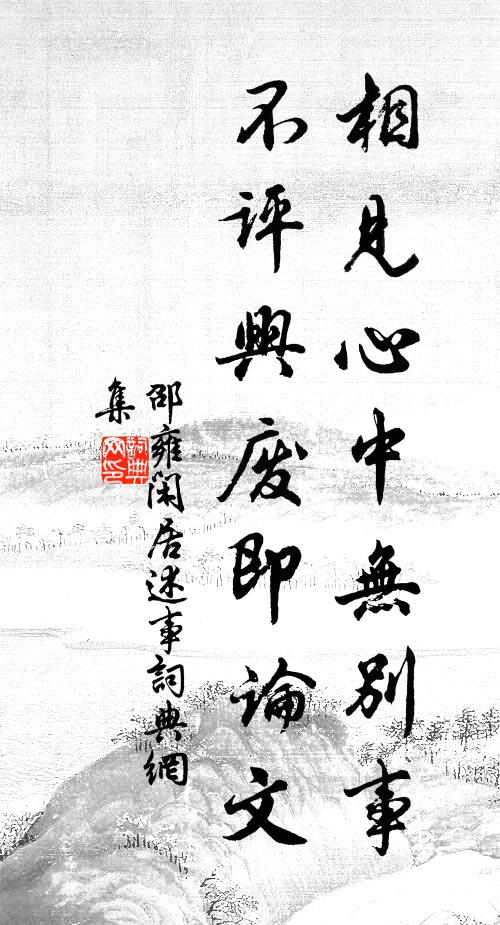 相見心中無別事
不評興廢即論文
邵雍閑居述事詞典網
集
詞典
网印